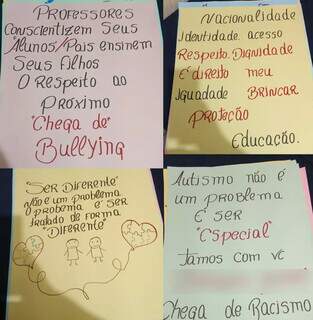 Professores
Conscientizem Seus
Alunos/Pais ensinem
Seus Filhos
O Respeito ao
Próximo
"Chega de"
Bullying
Nacionalidade
Identidade. acesso
Respeito. Dignidade
É direito meu
Iguadade Brincar
Proteção
Educação.
Ser Diferente
não é um problema
O probema é ser
tratado de forma
"Diferente"
Autismo não é
um problema
É ser
"Especial"
Tamos com vc
Chega de Racismo